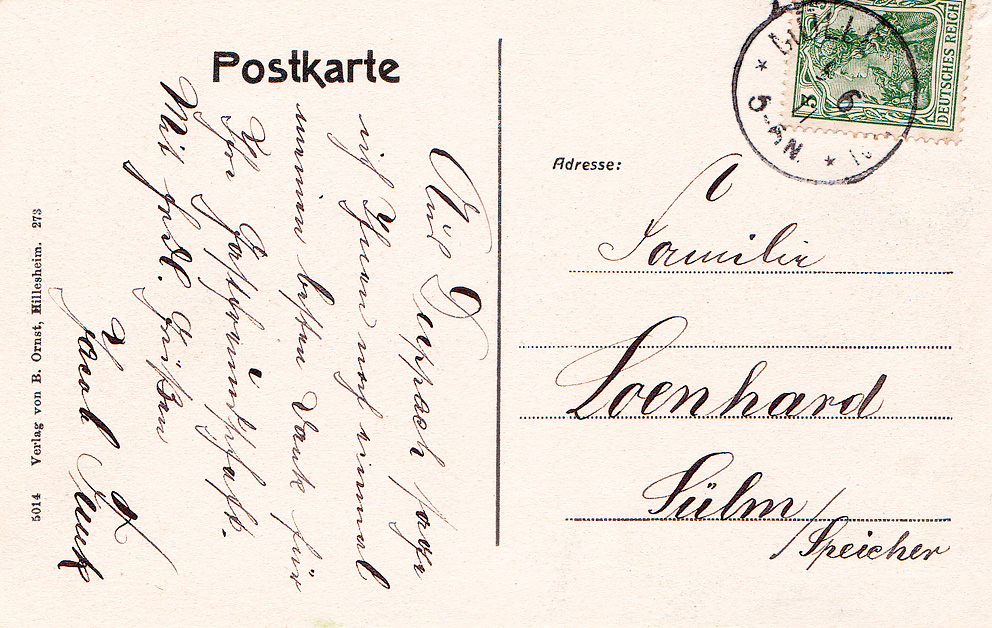 Postkarte
Aus Duppach sage
ich Ihnen noch einmal
meinen besten Dank für
Ihre Gastfreundschaft.
Mit frdl. Grüßen
Jacob Funk
5014 Verlag von B. Ornst, Hillesheim. 273
DEUTSCHES REICH
5
6
5-4N
Adresse:
Familie
Loenhard
Sülm/
Speicher